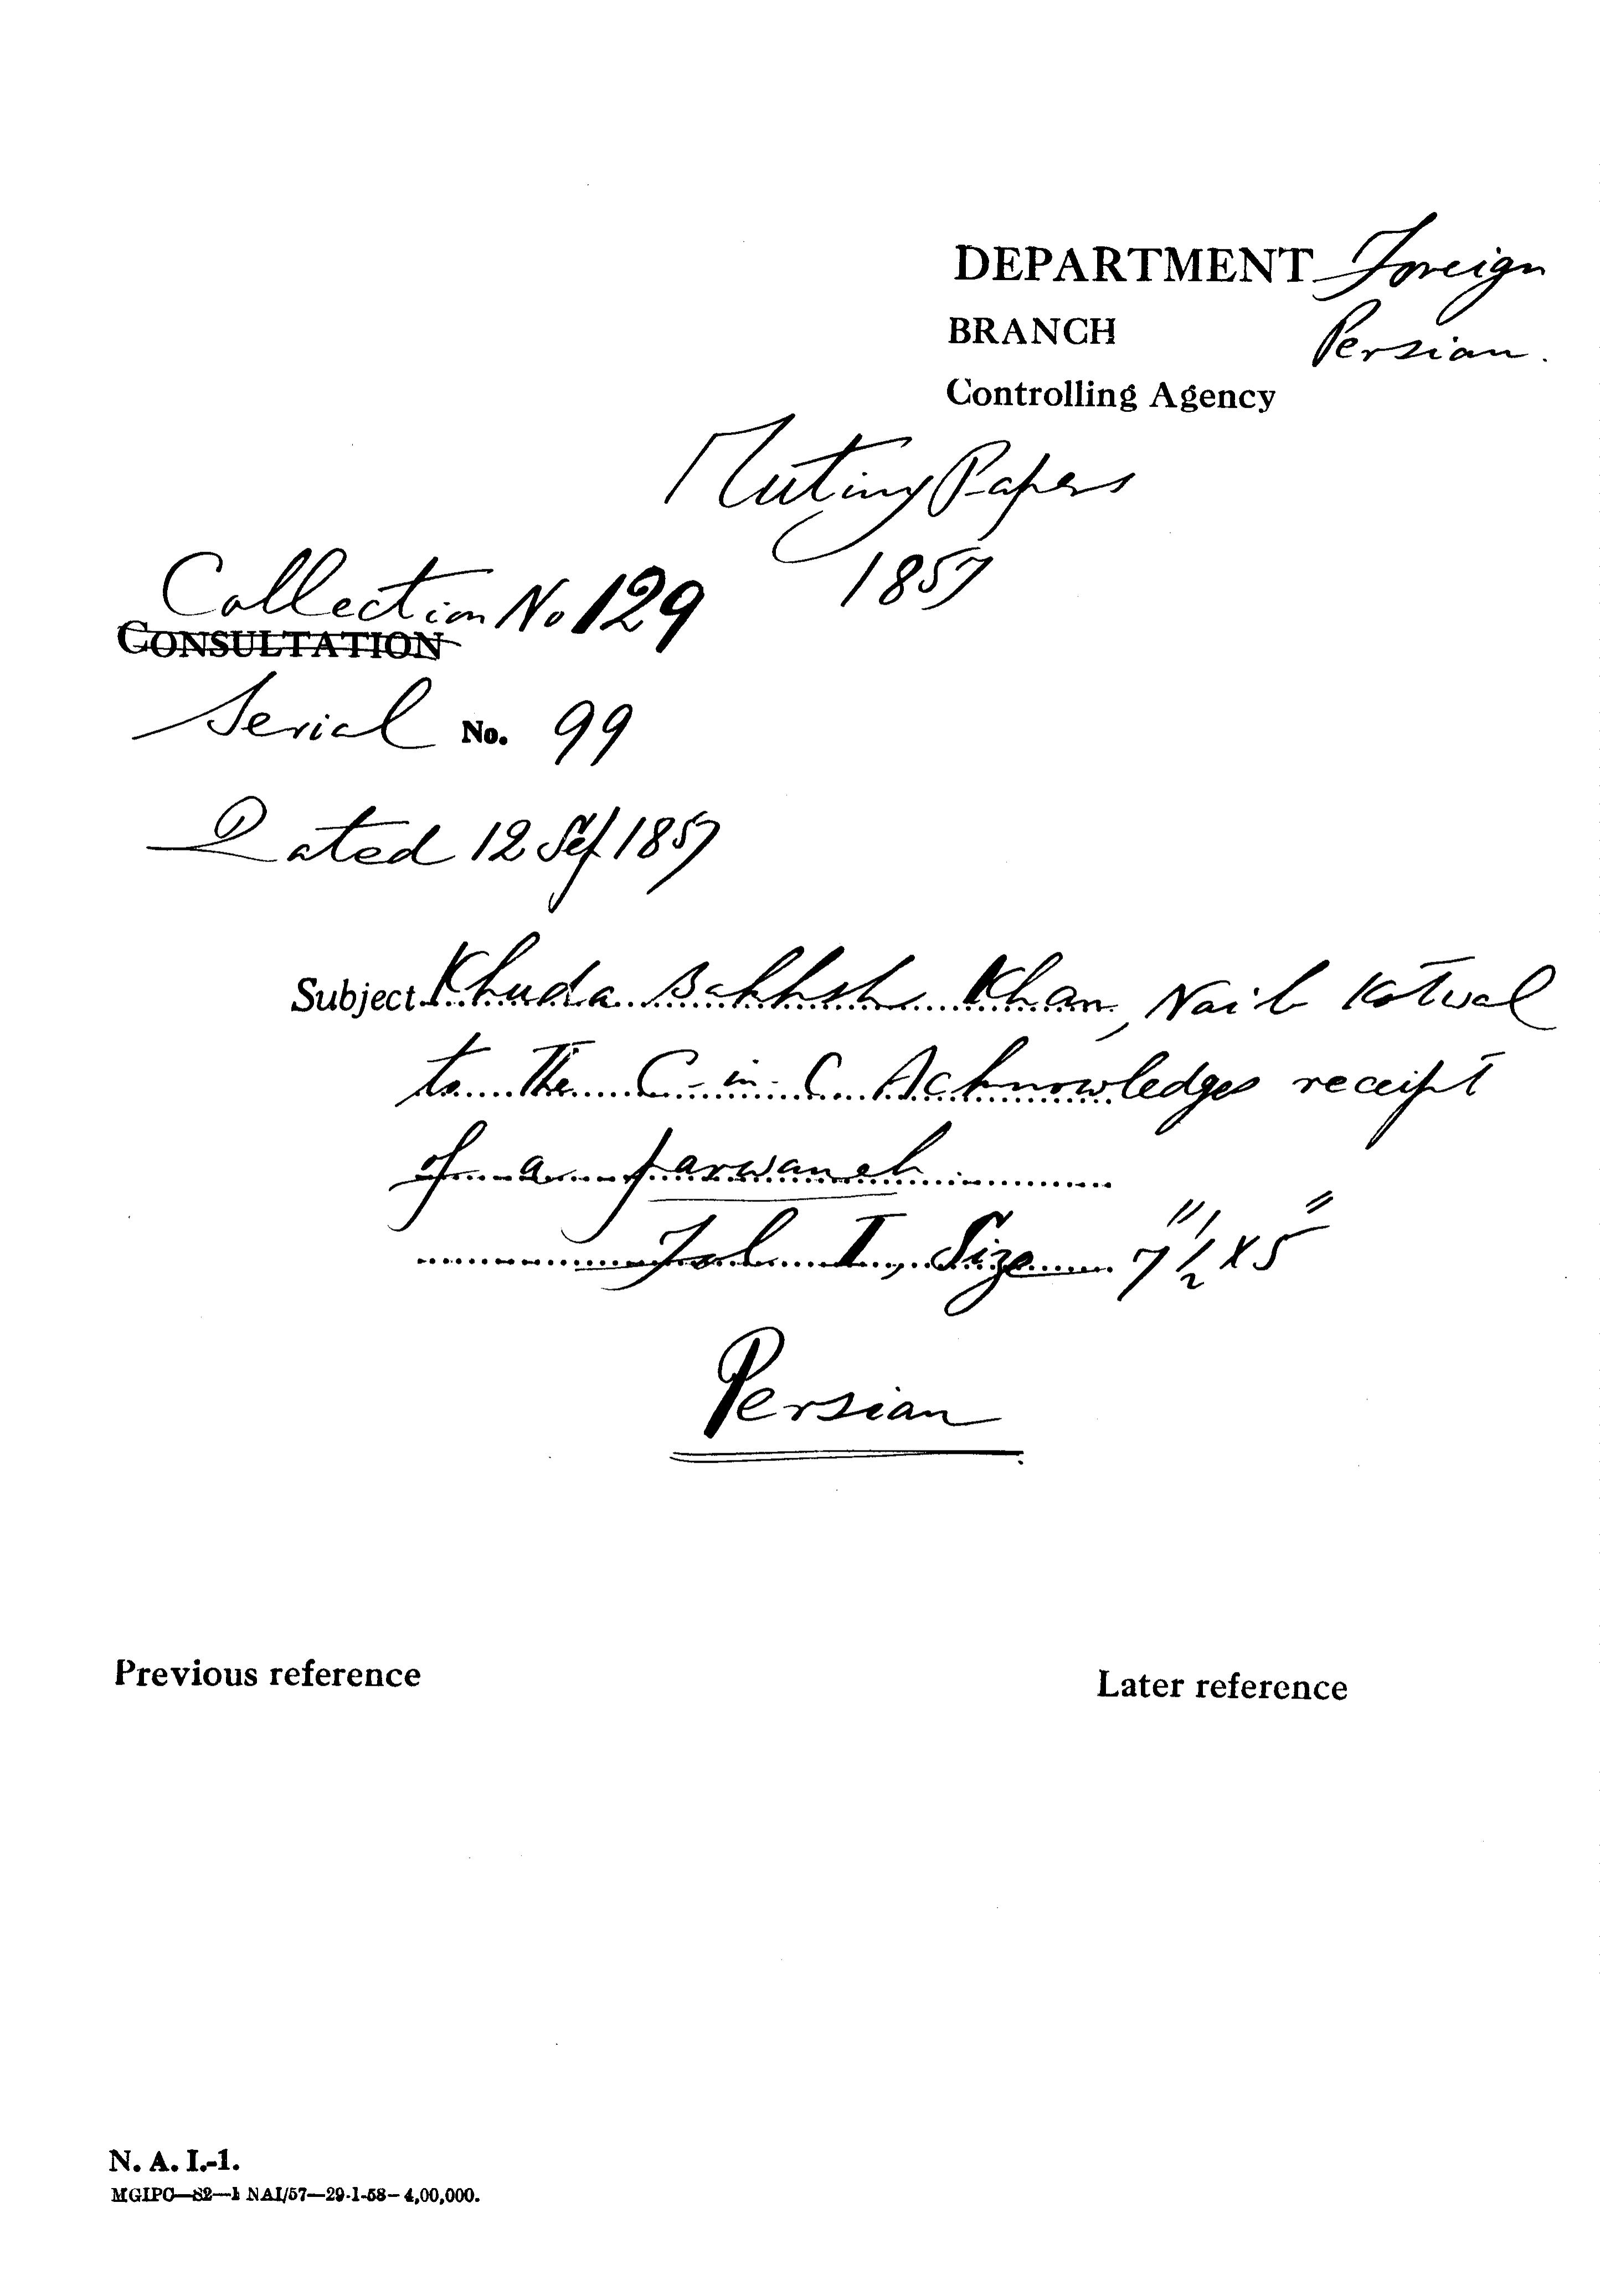 DEPARTMENT Foreign
BRANCH Persian.
Controlling Agency
Mutiny Papers
1857
Collection No 129
CONSULTATION
Serial No. 99
Dated 12 Sep 1857
Subject Khuda Bakhsh Khan, Naib Kotwal
to the C-in-C Acknowledges receipt
of a parwaneh
Fol I, Size 7"1/2 x 5"
Persian
Previous reference
Later reference
N. A. I.-1.
MGIPC—S2—1 NAI/57—29-1-58—4,00,000.